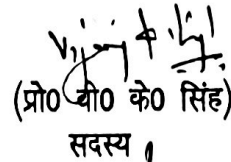 (प्रो0 वी0 के0 सिंह)
सदस्य